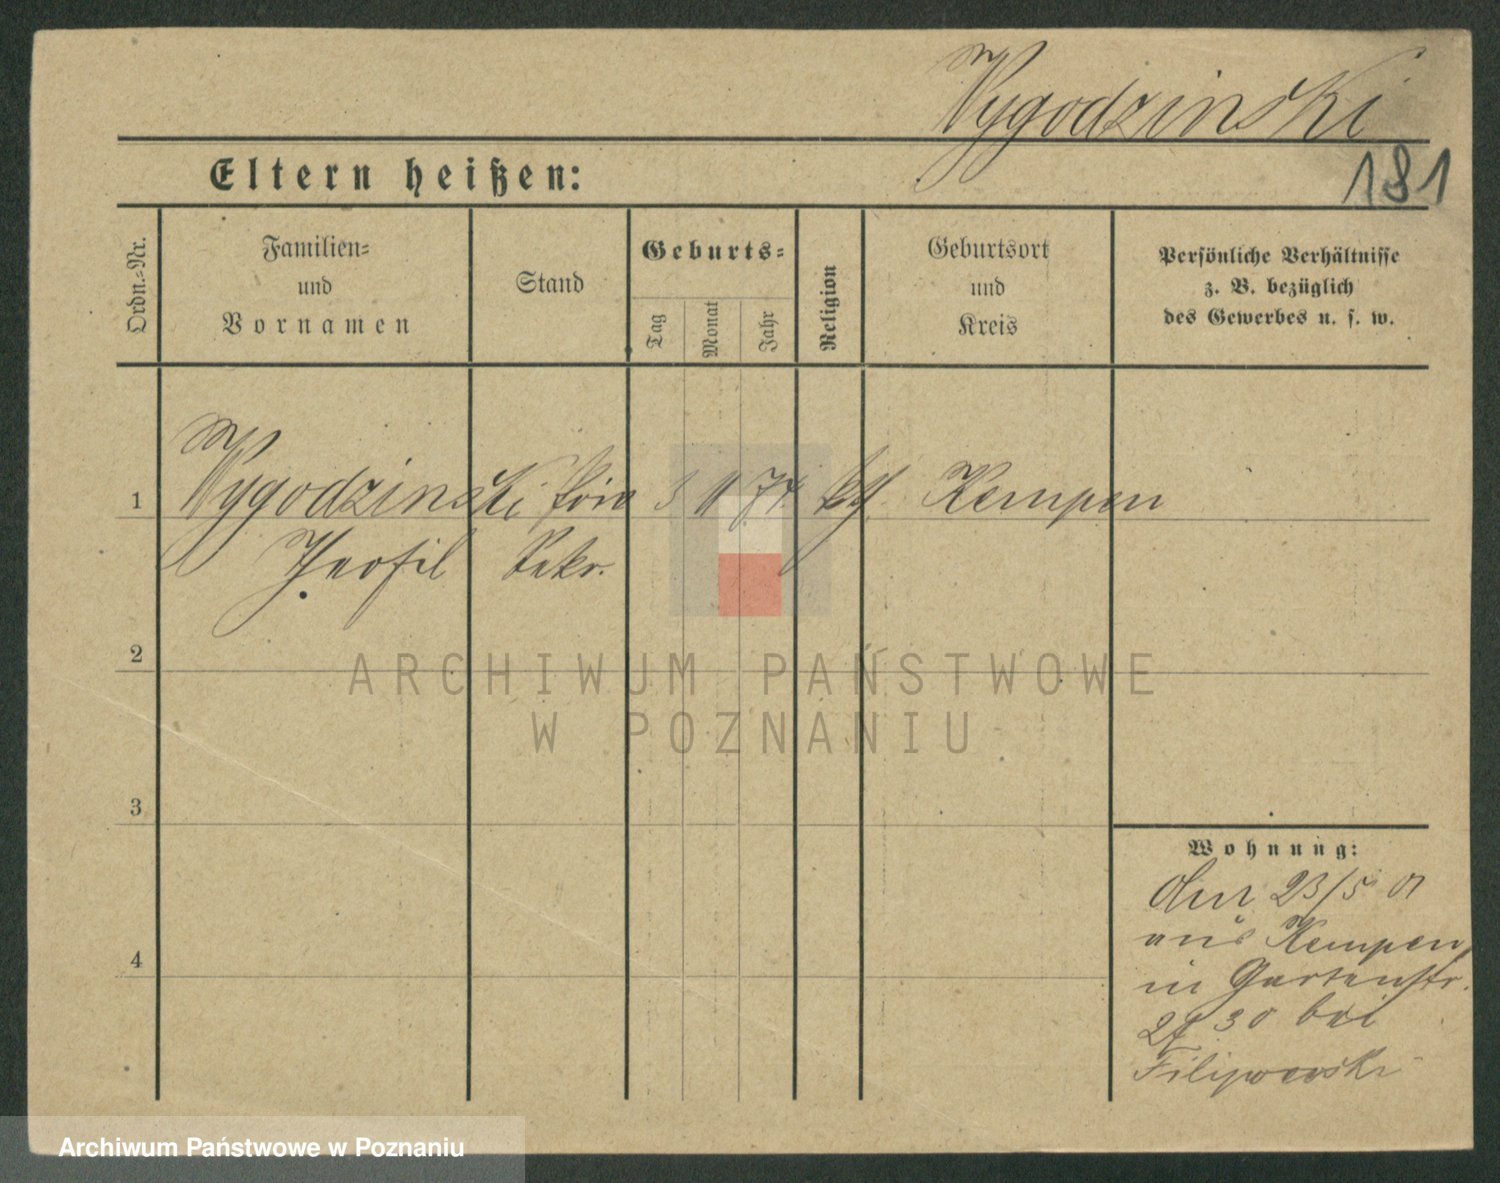 Wygodzinski
181
Eltern heißen:
Ordn.-Nr.
Familien- und Vornamen
Stand
Geburts-
Tag
Monat
Jahr
Religion
Geburtsort und Kreis
Persönliche Verhältnisse
z. B. bezüglich
des Gewerbes u. s. w.
1
Wygodzinski 3 11 74 Kempen
Sekr.
2
ARCHIWUM PAŃSTWOWE
W POZNANIU
3
4
Wohnung:
23/5 01
aus Kempen
in Gartenstr.
30 bei
Filipowski
Archiwum Państwowe w Poznaniu